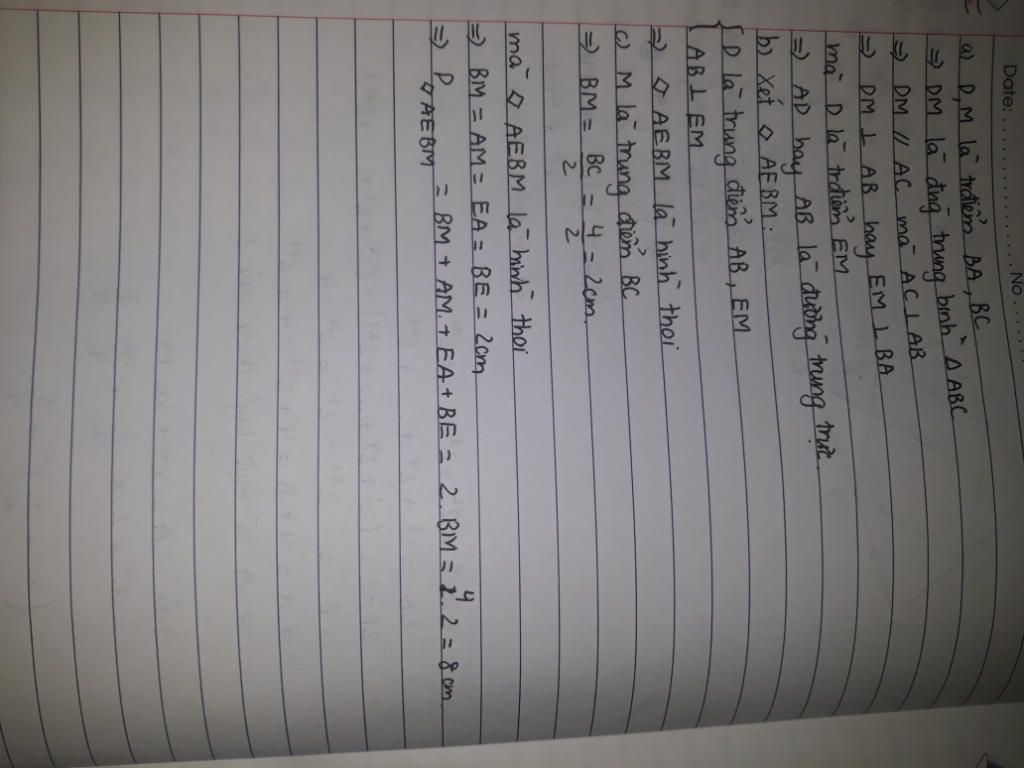 Date: ............... No ......
a) D, M là trđiểm BA, BC
=) DM là đng trung bình ΔABC
=) DM // AC mà AC ⊥ AB
=) DM ⊥ AB hay EM ⊥ BA
mà D là trđiểm EM
=) AD hay AB là đường trung trực.
b) Xét ◇ AEBM:
{ D là trung điểm AB, EM
AB ⊥ EM
=) ◇ AEBM là hình thoi
c) M là trung điểm BC
=) BM = BC/2 = 4/2 = 2cm.
mà ◇ AEBM là hình thoi
=) BM = AM = EA = BE = 2cm
=) P◇AEBM = BM + AM + EA + BE = 2. BM = 4. 2 = 8cm.